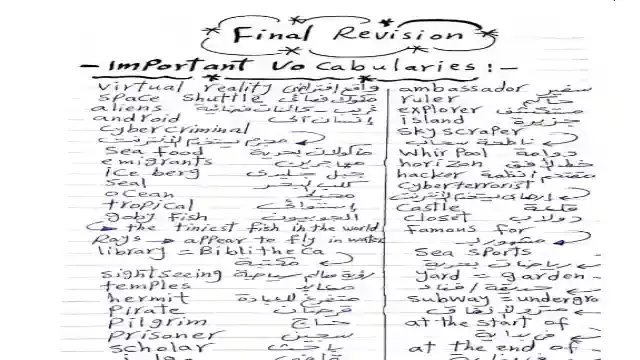 Final Revision
- Important Vocabularies :-
virtual reality واقع إفتراضى
space shuttle مكوك فضائى
aliens غريب - كائنات فضائية
android إنسان آلى
cyber criminal
مجرم يستخدم الإنترنت
Sea food مأكولات بحرية
emigrants مهاجرين
ice berg جبل جليدى
seal كلب البحر
ocean محيط
tropical إستوائى
goby fish الجوبيون
the tiniest fish in the world
Rays → appear to fly in water
library = Biblitheca
مكتبة
sightseeing رؤية معالم سياحية
temples معابد
hermit متفرغ للعبادة
Pirate قرصان
Pilgrim حاج
prisoner سجين
scholar باحث
ambassador سفير
ruler حاكم
explorer مستكشف
island جزيرة
sky scraper
ناطحة سحاب
Whirpool دوامة
horizon خط الأفق
hacker مقتحم أنظمة
Cyberterrorist
إرهابى يستخدم الإنترنت
Castle قلعة
closet دولاب
famous for
مشهور بـ
Sea sports
رياضات بحرية
yard = garden
حديقة / فناء
subway = undergro
مترو الأنفاق
at the start of
فى بداية
at the end of